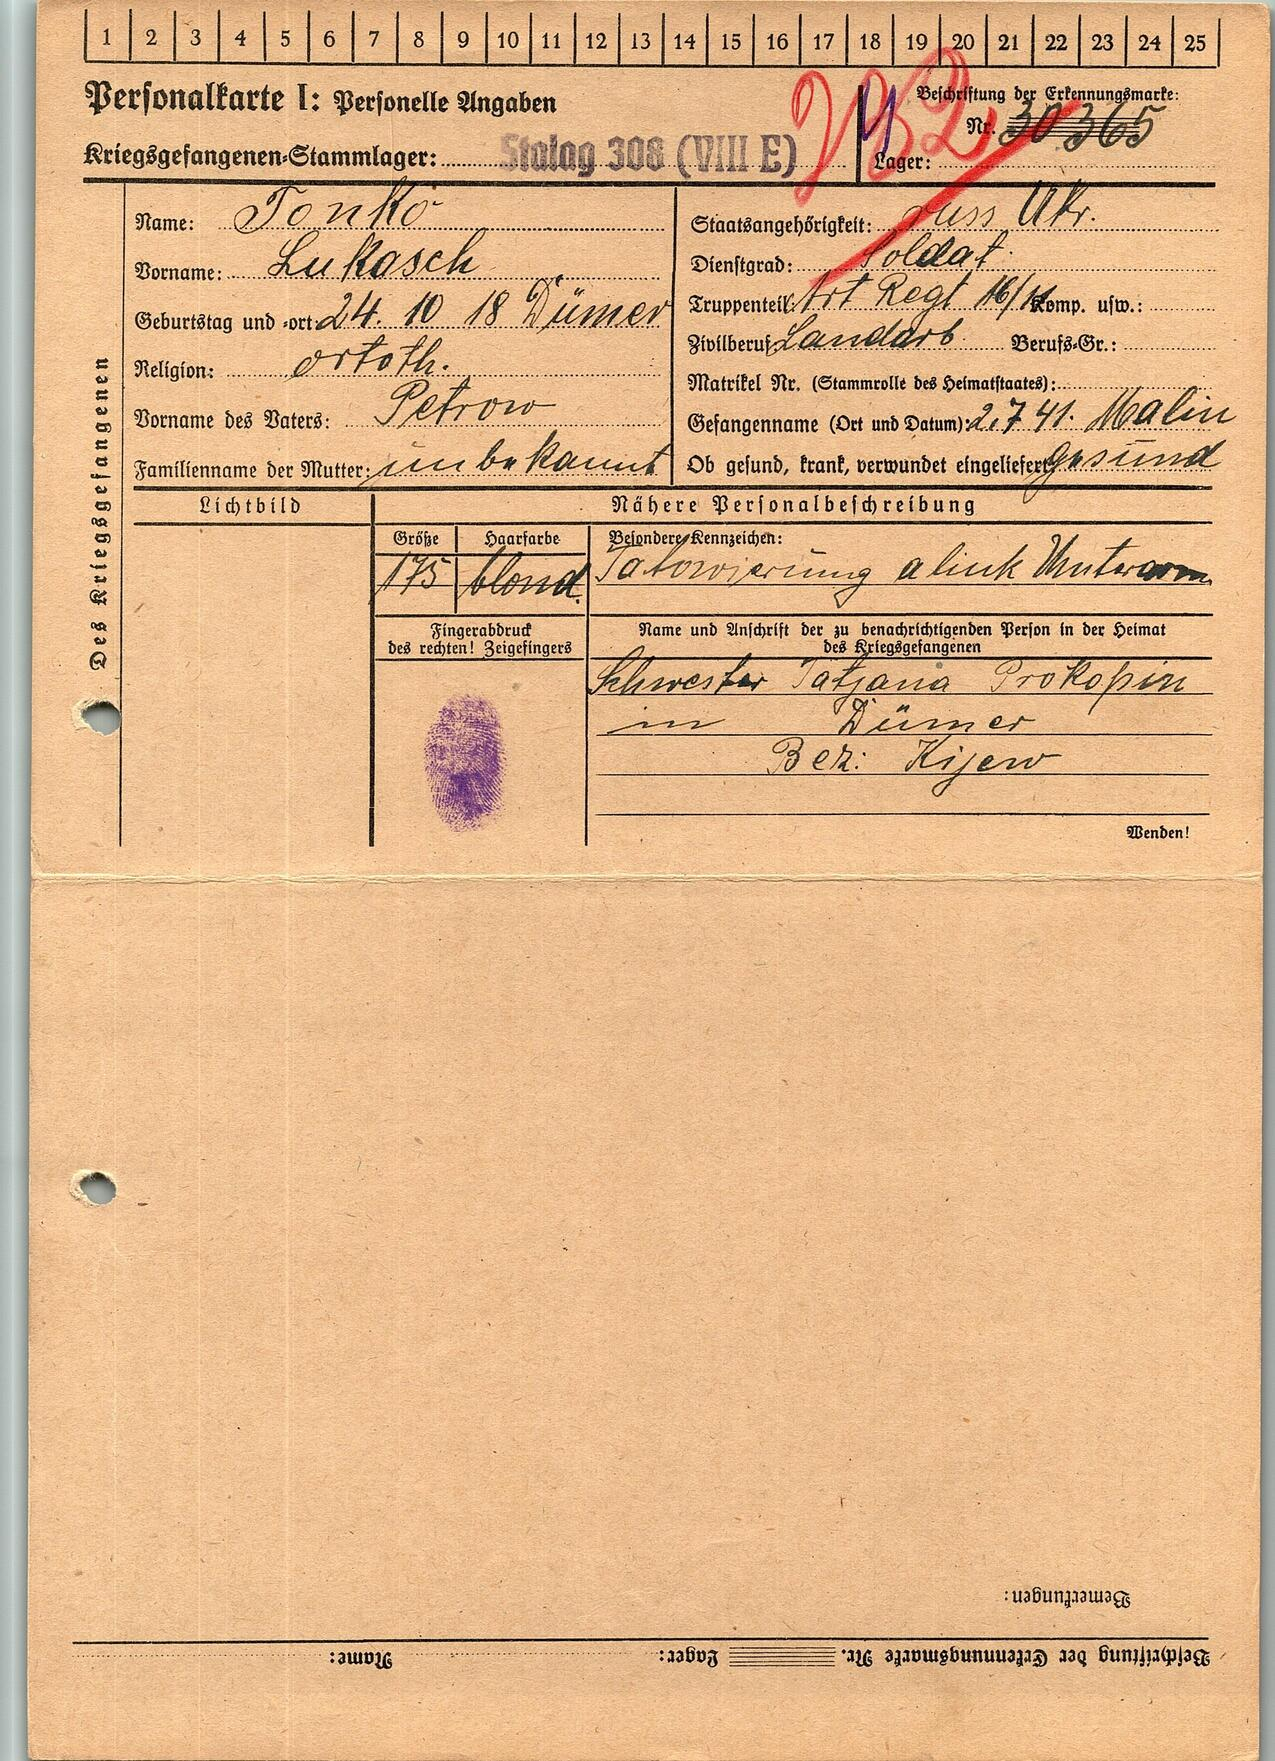 1 2 3 4 5 6 7 8 9 10 11 12 13 14 15 16 17 18 19 20 21 22 23 24 25
Personalkarte I: Personelle Angaben
Kriegsgefangenen-Stammlager: Stalag 308 (VIII E)
Beschriftung der Erkennungsmarke:
Nr. 30365
Lager:
Des Kriegsgefangenen
Name: Tonko
Vorname: Lukasch
Geburtstag und -ort 24. 10 18 Dümer
Religion: ortoth.
Vorname des Vaters: Petrow
Familienname der Mutter: unbekannt
Staatsangehörigkeit: russ Ukr.
Dienstgrad: Soldat
Truppenteil: Art Regt 16/ Komp. usw.:
Zivilberuf: Landarb Berufs-Gr.:
Matrikel Nr. (Stammrolle des Heimatstaates):
Gefangenname (Ort und Datum): 2.7 41. Malin
Ob gesund, krank, verwundet eingeliefert: gesund
Lichtbild
Nähere Personalbeschreibung
Größe Haarfarbe Besondere Kennzeichen:
175 blond. Tatowierung a link Unterarm
Fingerabdruck
des rechten! Zeigefingers
Name und Anschrift der zu benachrichtigenden Person in der Heimat
des Kriegsgefangenen
Schwester Tatjana Prokopin
in Dümer
Bez: Kijew
Wenden!
Bemerkungen:
Beschriftung der Erkennungsmarke Nr. Lager: Name: